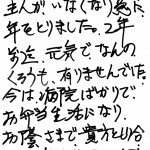 主人がいなくなり急に
年をとりました。2年
前迄元気でなんの
くろうも、有りませんでした
今は、病院ばかりで、
お弁当生活になり、
お蔭さまで貴方と小合